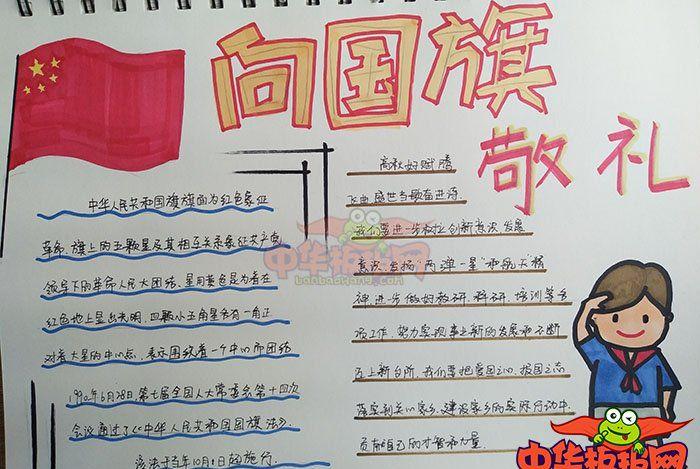 向国旗
敬礼
中华人民共和国旗旗面为红色象征
革命,旗上的五颗星及其相互关系象征共产党
领导下的革命人民大团结,星用黄色是为着在
红色地上显出光明,四颗小五角星各有一角正
对着大星的中心点,表示围绕着一个中心而团结
1990年6月28日,第七届全国人大常委会第十四次
会议通过了《中华人民共和国国旗法》.
该法于当年10月1日起施行.
高秋好赋腾
飞曲,盛世当歌奋进诗.
我们要进一步树立创新意识、发展
意识,发扬“两弹一星”和航天精
神,进一步做好教研、科研、培训等各
项工作,努力实现事业新的发展和不断
迈上新台阶,我们要把爱国之心、报国之志
落实到关心家乡、建设家乡的实际行动中,
贡献自己的才智和力量
中华报报网
banbaowang.com
中华报报网